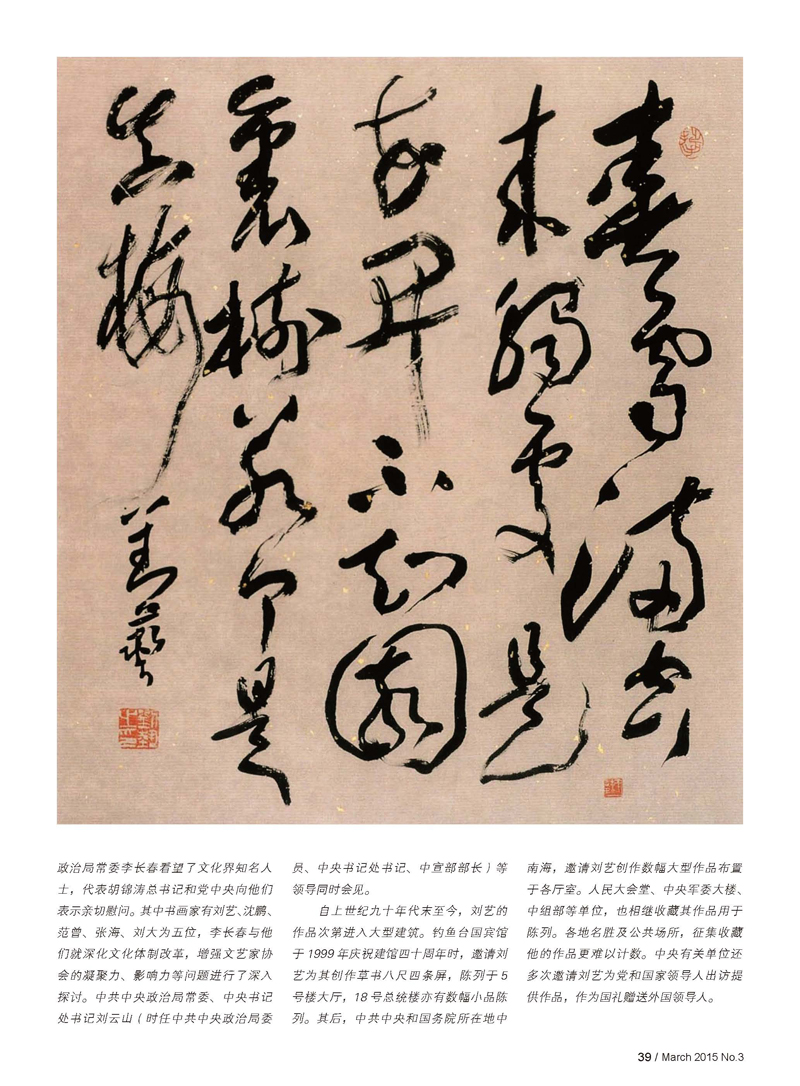 春雪滿空
来觸處是
花開不知園
裏樹若个是
真梅 劉藝
政治局常委李长春看望了文化界知名人
士，代表胡锦涛总书记和党中央向他们
表示亲切慰问。其中书画家有刘艺、沈鹏、
范曾、张海、刘大为五位，李长春与他
们就深化文化体制改革，增强文艺家协
会的凝聚力、影响力等问题进行了深入
探讨。中共中央政治局常委、中央书记
处书记刘云山（时任中共中央政治局委
员、中央书记处书记、中宣部部长）等
领导同时会见。
自上世纪九十年代末至今，刘艺的
作品次第进入大型建筑。钓鱼台国宾馆
于 1999 年庆祝建馆四十周年时，邀请刘
艺为其创作草书八尺四条屏，陈列于 5
号楼大厅，18 号总统楼亦有数幅小品陈
列。其后，中共中央和国务院所在地中
南海，邀请刘艺创作数幅大型作品布置
于各厅室。人民大会堂、中央军委大楼、
中组部等单位，也相继收藏其作品用于
陈列。各地名胜及公共场所，征集收藏
他的作品更难以计数。中央有关单位还
多次邀请刘艺为党和国家领导人出访提
供作品，作为国礼赠送外国领导人。
39 / March 2015 No.3